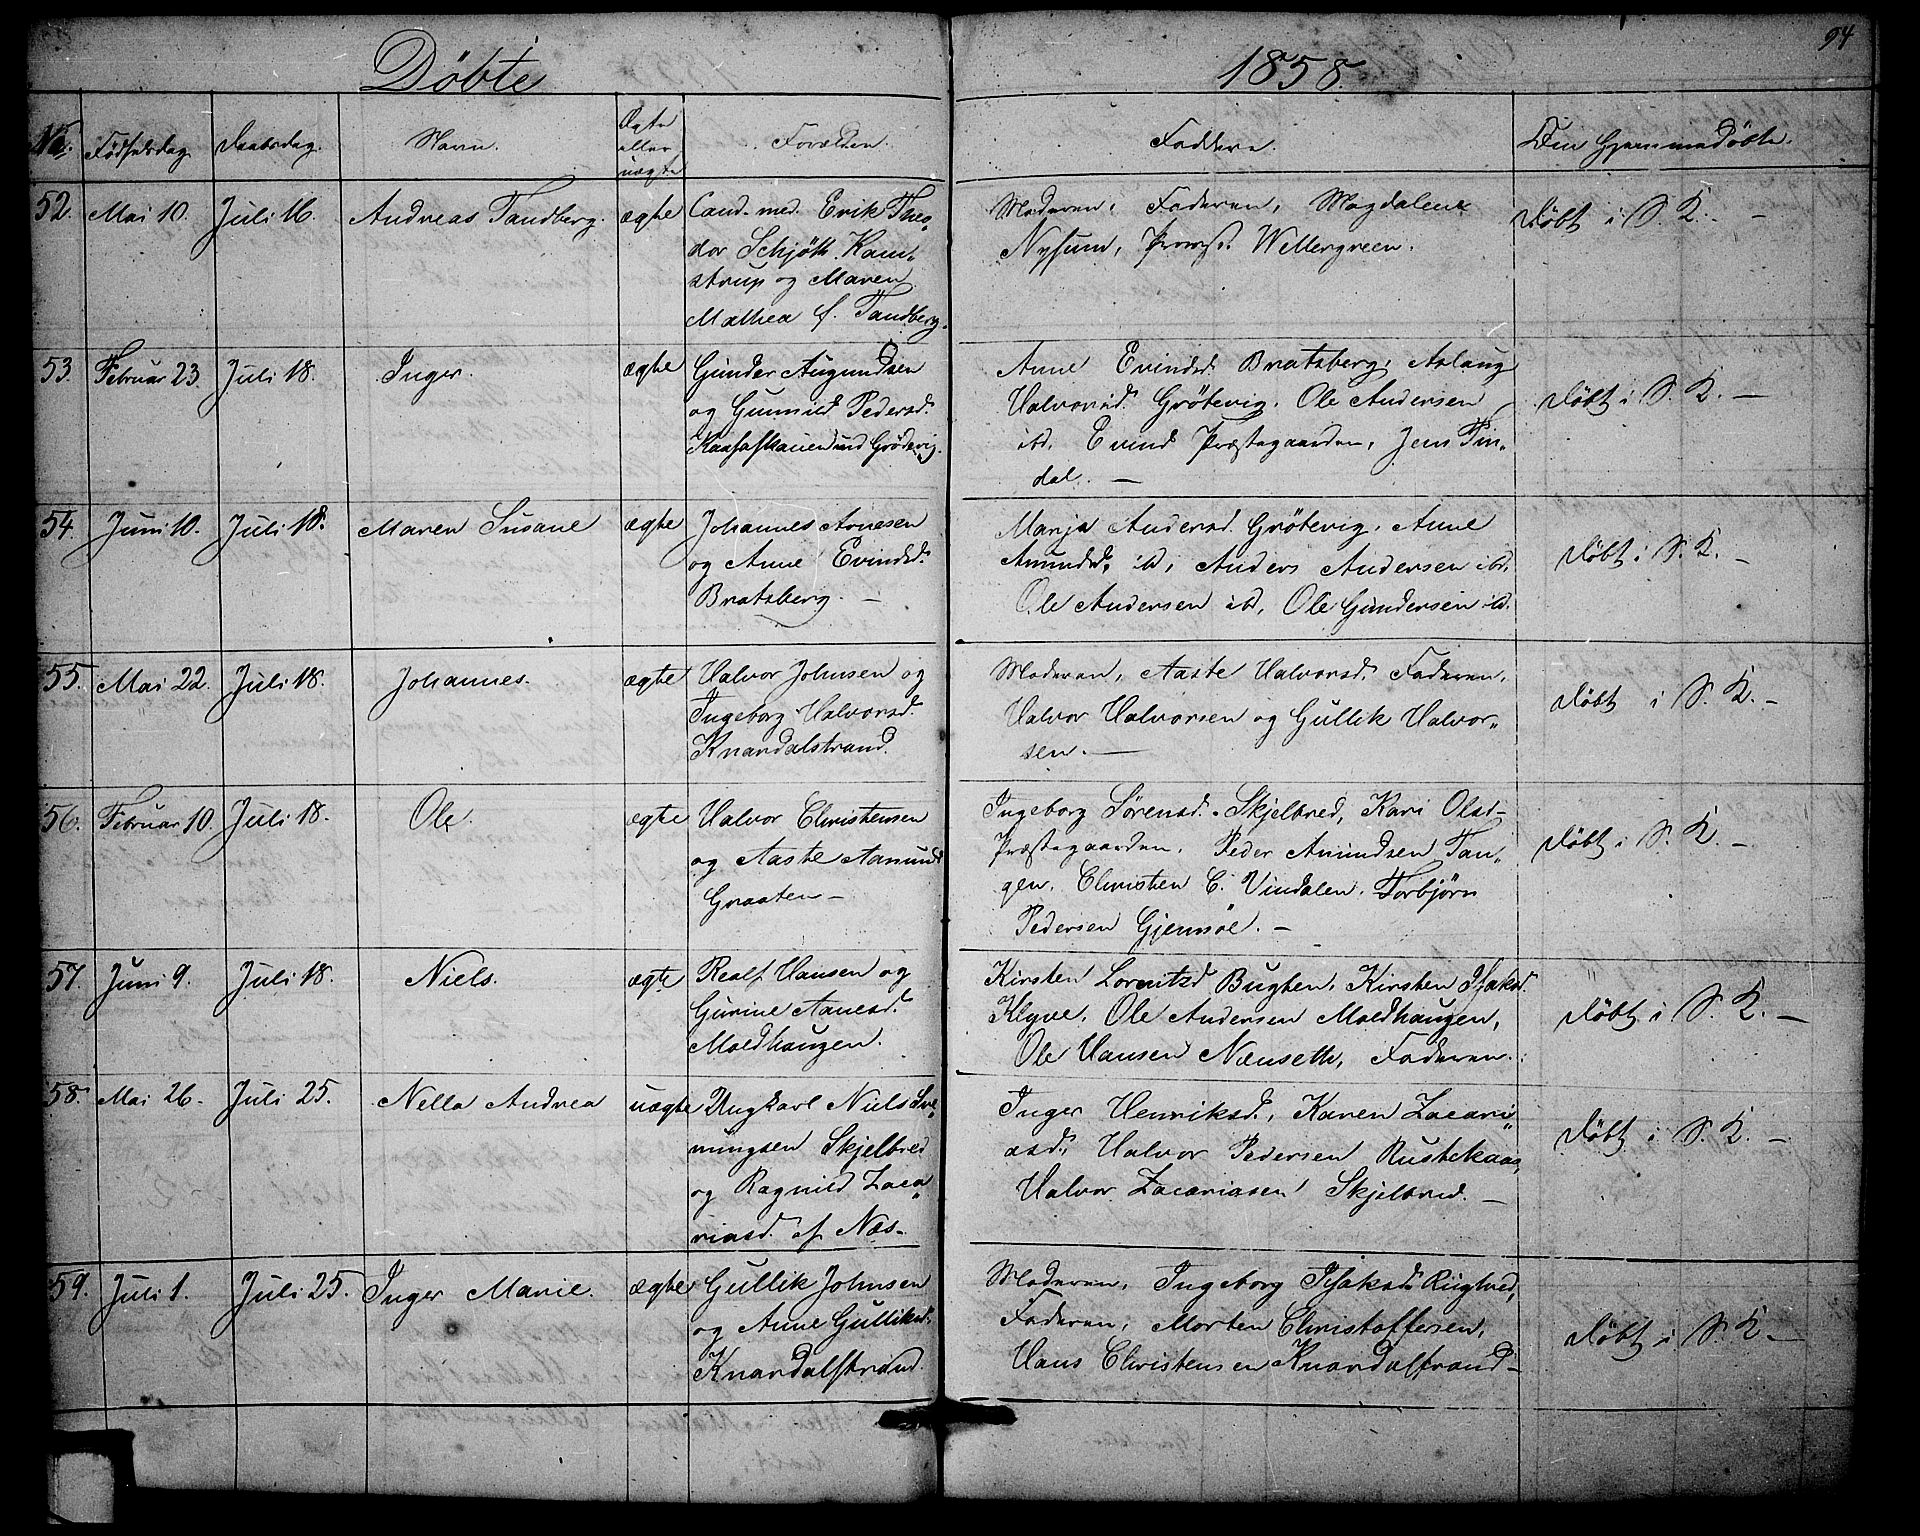 Døbte 1858. 94
No. Fødselsdag Daabsdag. Navn. Ægte eller uægte Forældre. Faddere. Din Hjemmedøbte.
52. Mai 10. Juli 16. Andreas Tandberg. ægte Cand. med. Erik Theo-
dor Schjøth Kam-
strup og Maren
Mathea f. Tandberg.
Moderen, Faderen, Magdalene
Nysum, Provst Wettergreen.
Døbt i S. K. —
53. Februar 23. Juli 18. Inger. ægte Gunder Augundsen
og Gunnild Pedersd.
Graatenvig.
Anne Evindsd. Bratsberg, Aslaug
Halvorsd. Grøtevig, Ole Andersen
ibd. Evind Præstegaarden, Jens Tin-
dal. —
Døbt i S. K. —
54. Juni 10. Juli 18. Maren Susane ægte Johannes Arnesen
og Anne Evindsd.
Bratsberg. —
Marja Andersd. Grøtevig, Anne
Amundsd. ibd, Anders Andersen ibd.
Ole Andersen ibd, Ole Gundersen ibd.
Døbt i S. K. —
55. Mai 22. Juli 18. Johannes. ægte Halvor Johnsen og
Ingeborg Halvorsd.
Knardalstrand.
Moderen, Aaste Halvorsd. Faderen,
Halvor Halvorsen og Gullik Halvor-
sen. —
Døbt i S. K. —
56. Februar 10. Juli 18. Ole. ægte Halvor Christensen
og Aaste Aamundsd
Graaten —
Ingeborg Sørensd. Skjelbred, Kari Olsd-
Præstegaarden, Peder Amundsen Tan-
gen, Christen C. Vindalen, Torbjørn
Pedersen Gjemsøe. —
Døbt i S. K. —
57. Juni 9. Juli 18. Niels. ægte Realf Hansen og
Gurine Aanesd.
Moldhaugen.
Kirsten Lorentsd Bugten, Kirsten Isaksd.
Klyve, Ole Andersen Moldhaugen,
Ole Hansen Nenseth, Faderen.
Døbt i S. K. —
58. Mai 26. Juli 25. Nella Andrea uægte Ungkarl Niels Sve-
nungsen Skjelbred
og Ragnild Zaca-
riasd. af Næs.
Inger Henriksd., Karen Zacari-
asd., Halvor Pedersen Rustekaas,
Halvor Zacariasen Skjelbred. —
Døbt i S. K. —
59. Juli 1. Juli 25. Inger Marie. ægte Gullik Johnsen
og Anne Gulliksd.
Knardalstrand.
Moderen, Ingeborg Isaksd.
Faderen, Morten Christoffersen,
Hans Christensen Knardalstrand —
Døbt i S. K. —